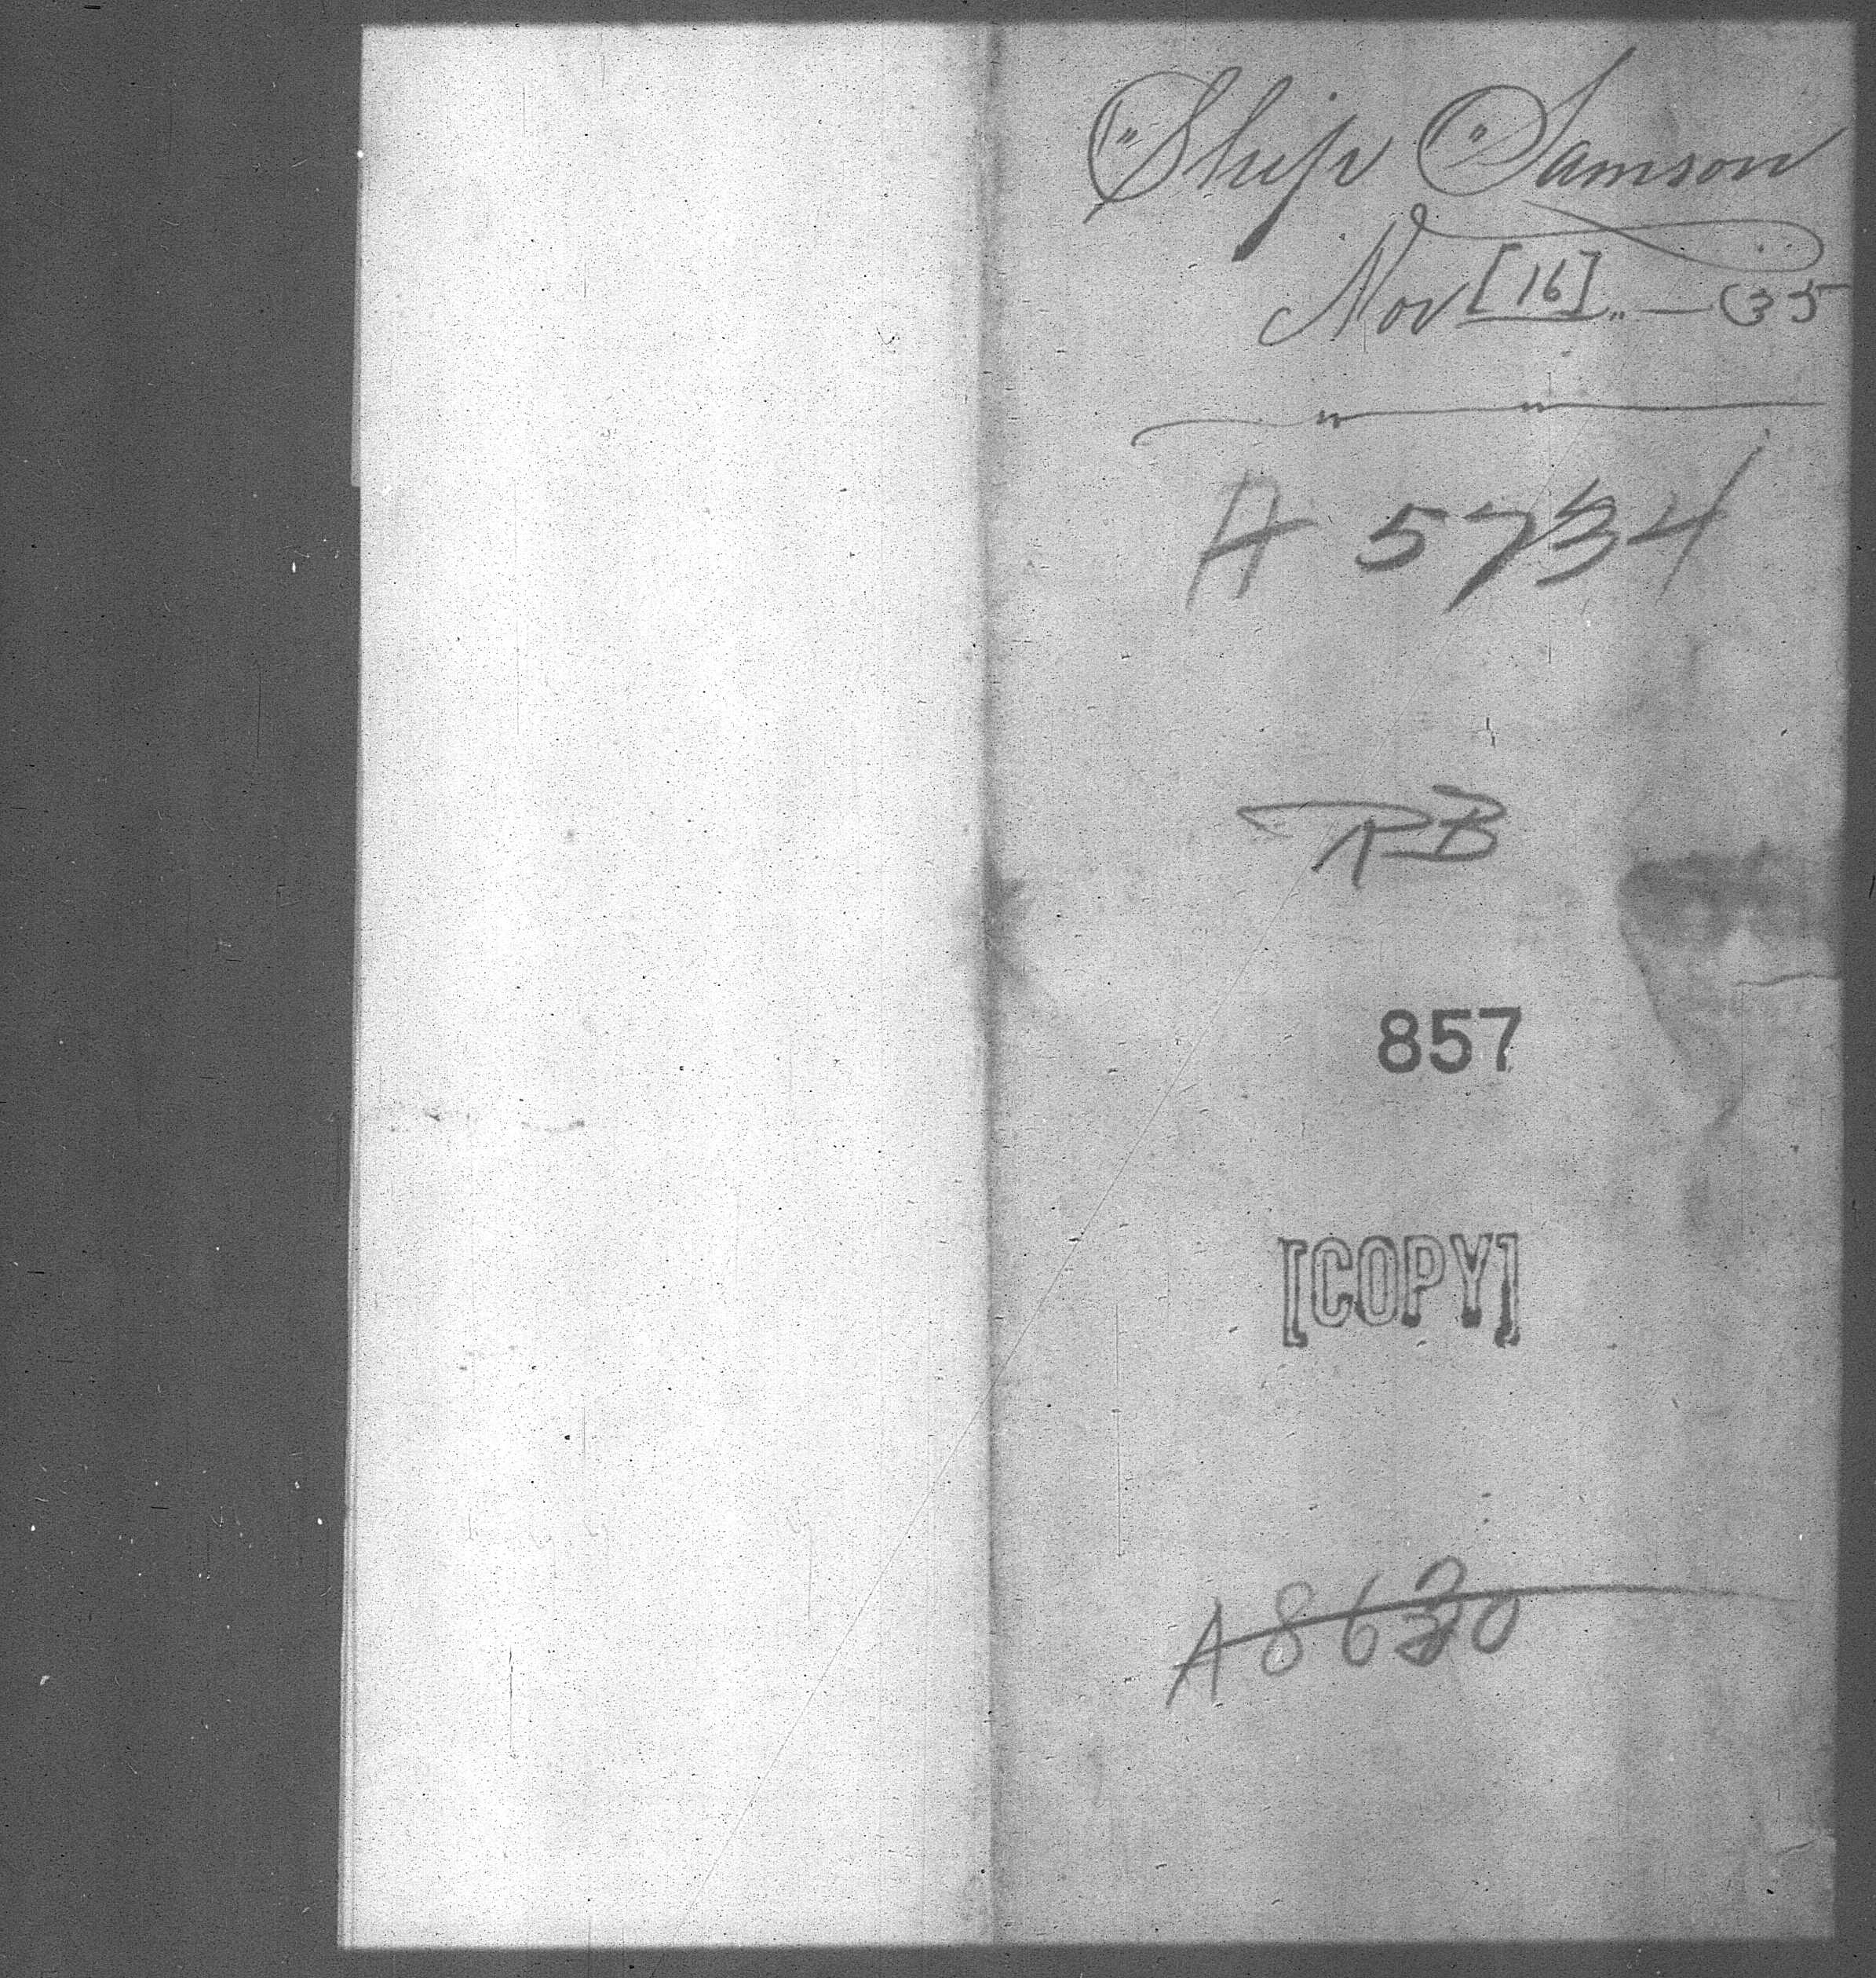 Ship Samson
Nov [16] „ — 35
A 5734
RB
857
[COPY]
A 8630